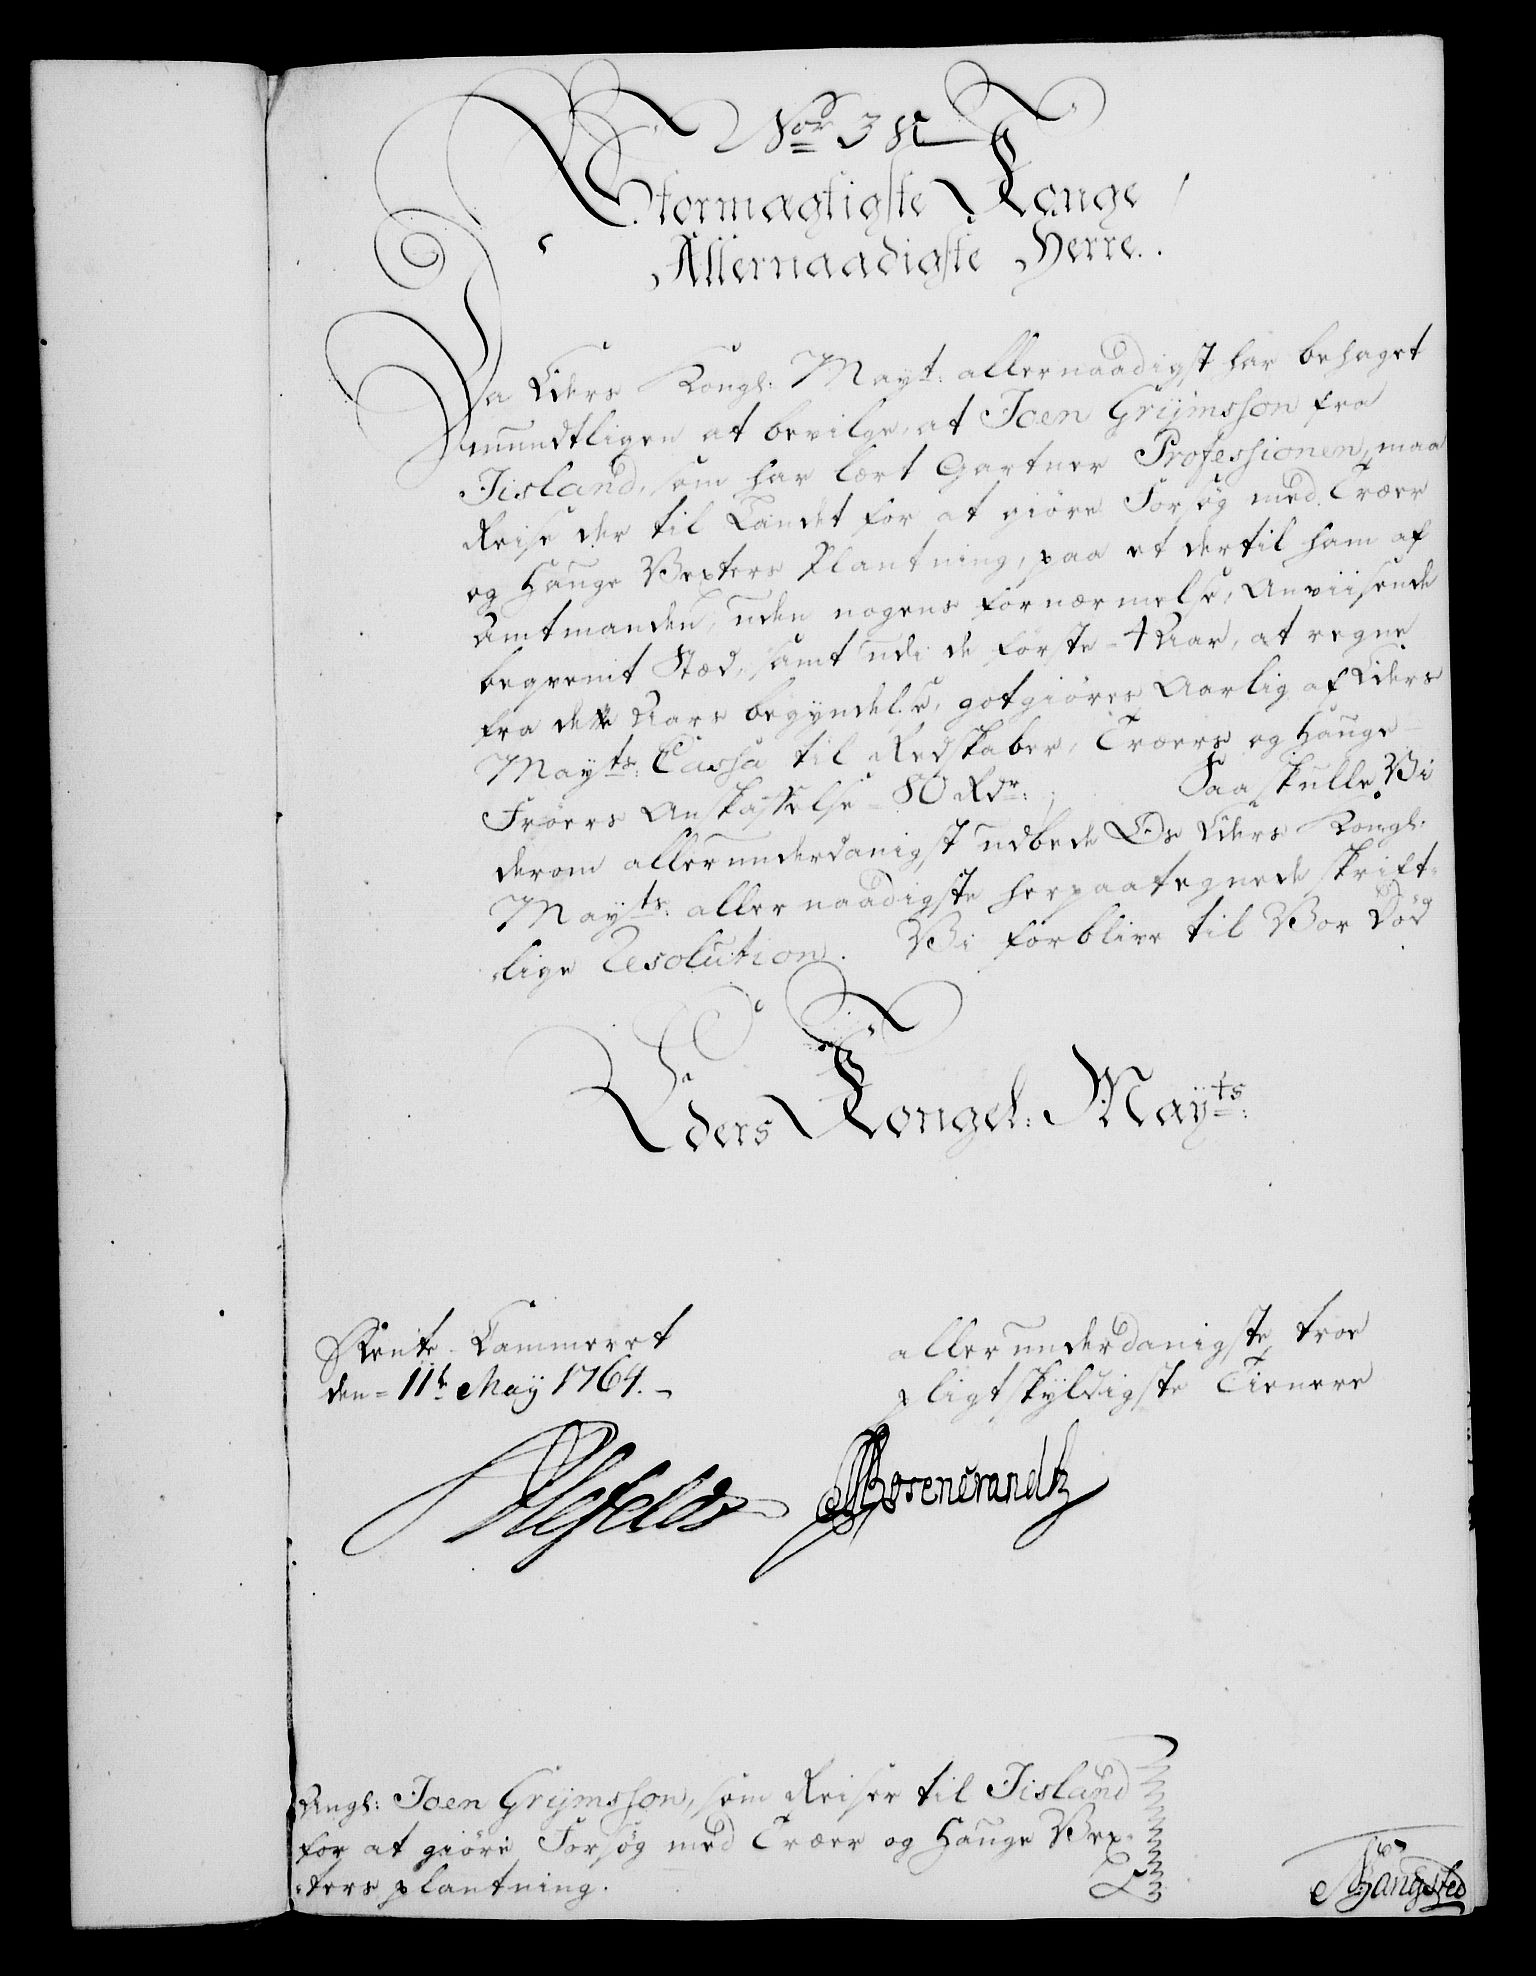 No 38
Stormægtigste Konge
Allernaadigste Herre.
Da Eders Kongl: Mayt: allernaadigst har behaget
mundtligen at bevilge, at Joen Grijmsson fra
Jisland, som har lært Gartner Professionen, maa
Reise der til Landet for at giøre Forsøg med Træer
og Hauge Vexters Plantning, paa et dertil ham af
Amtmanden, uden nogens fornærmelse, Anviisende
beqvemt Stæd, samt udi de første 4 Aar, at regne
fra dette Aars begyndelse, gotgiøres Aarlig af Eders
Mayts: Cassa til Redskaber, Træers og Hauge
Frøers Anskaffelse 80 Rdr: ; Saa skulle Vi
derom allerunderdanigst udbede Os Eders Kongl:
Mayts: allernaadigste herpaategnede skrift-
lige Resolution. Vi forblive til Vor Død
Eders Kongel: Mayts:
Rente Cammeret
den 11te May 1764.
allerunderdanigste troe
pligtskyldigste Tienere
Ahlefeldt
Rosencrandtz
Angl: Joen Grijmsson, som Reiser til Jisland
for at giøre Forsøg med Træer og Hauge Vex-
ters plantning.
Bangsted